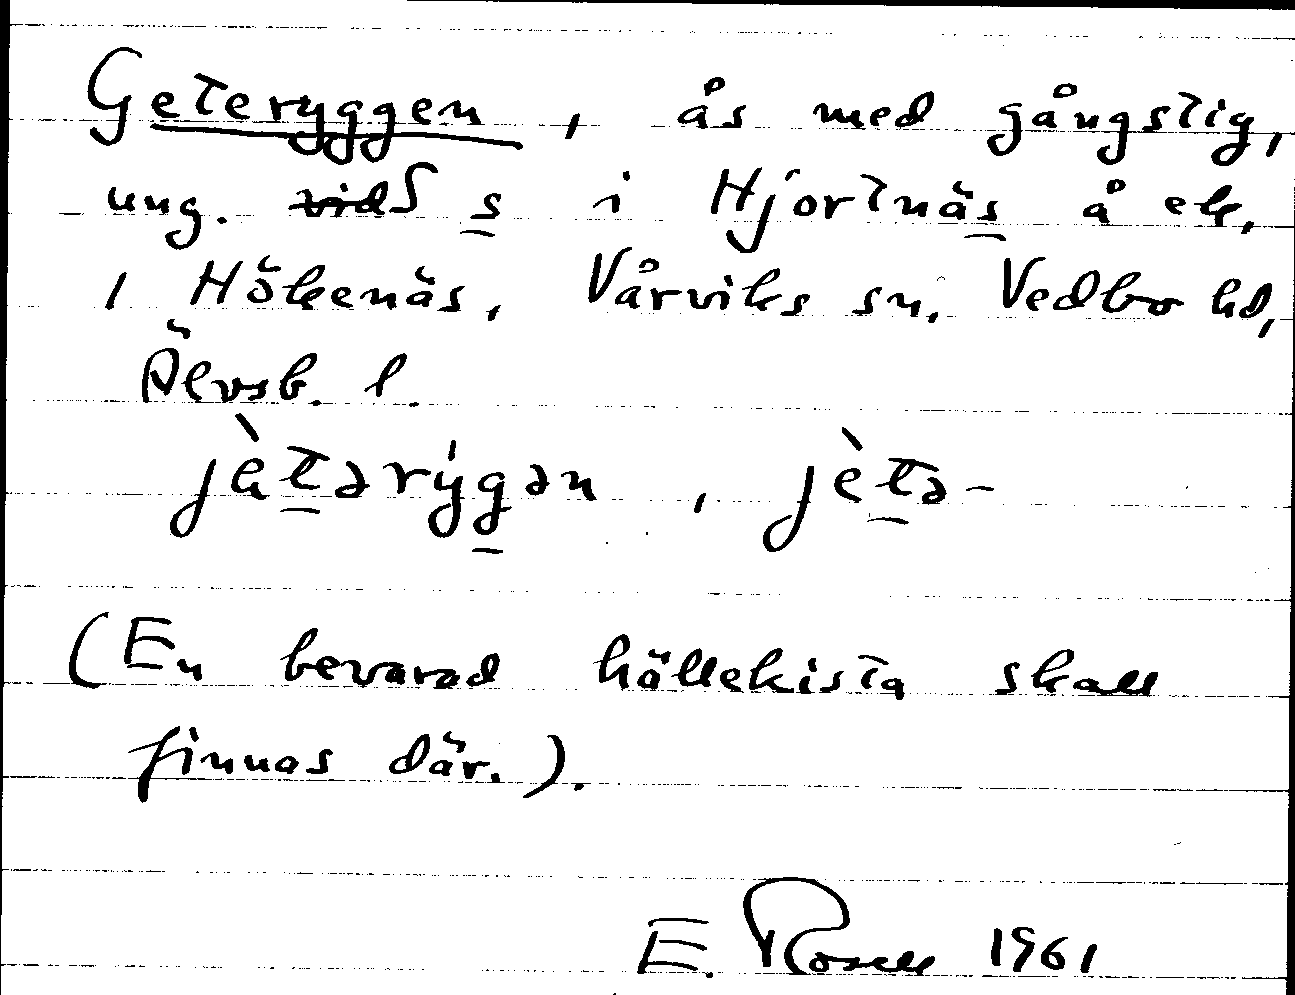 Geteryggen, ås med gångstig,
ung. vid s i Hjortnäs å ek,
i Hökenäs, Vårviks sn, Vedbo hd,
Älvsb. l.
jètərýgən, jètə-
(En bevarad hällekista skall
finnas där.).
E. Rosell 1961